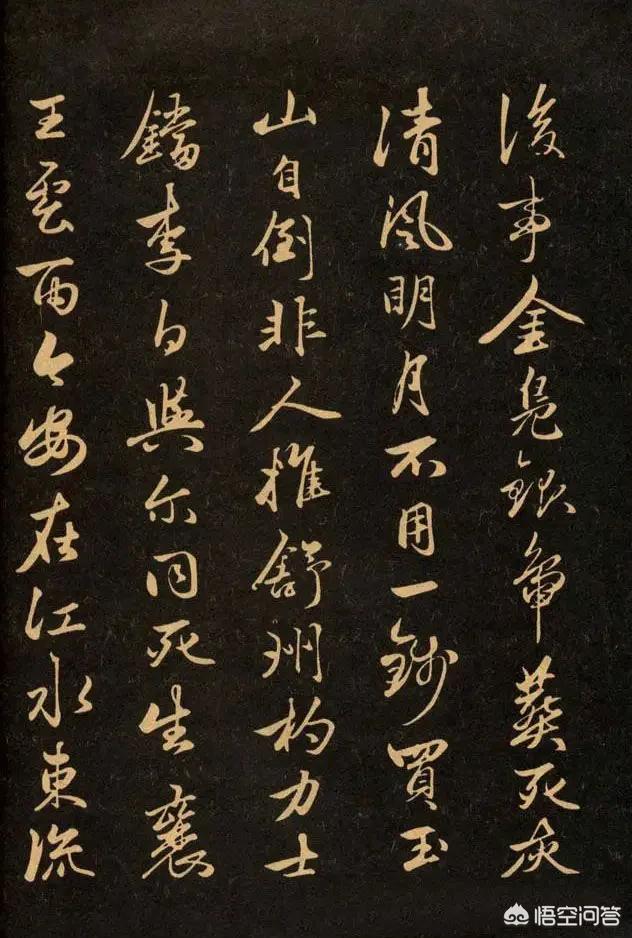 後事金鳧銀葬死灰
清風明月不用一錢買玉
山自倒非人推舒州杓力士
鐺李白與尔同死生襄
王雲雨今安在江水東流
悟空问答